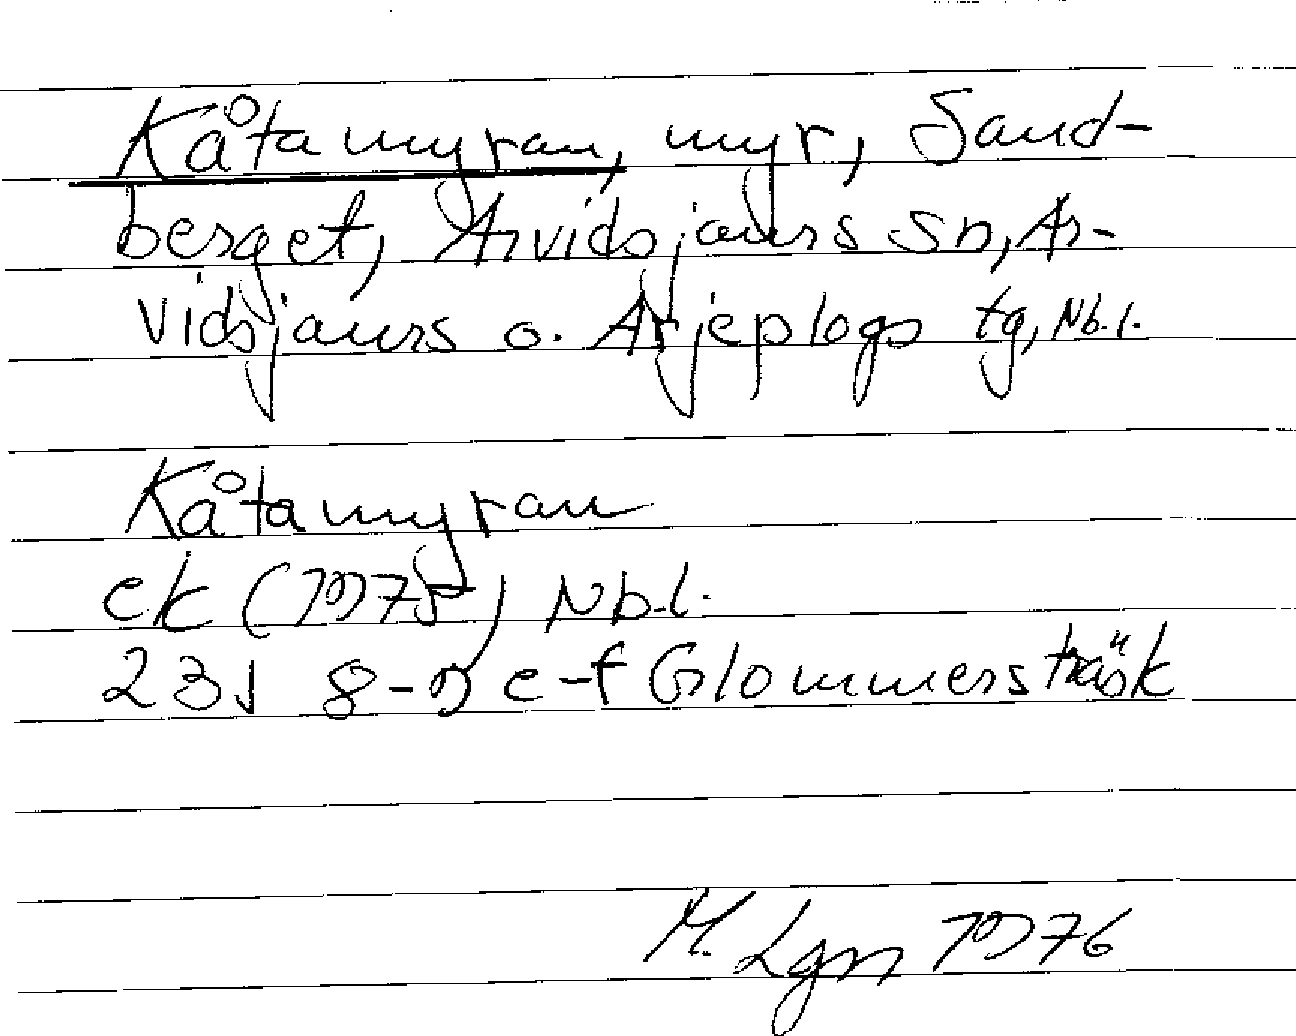 Kåtamyran, myr, Sand-
berget, Arvidsjaurs sn, Ar-
vidsjaurs o. Arjeplogs tg, Nb.l.
Kåtamyran
ek (1975) Nb.l.
23J 8-9 e-f Glommersträsk
M. Lgn 1976